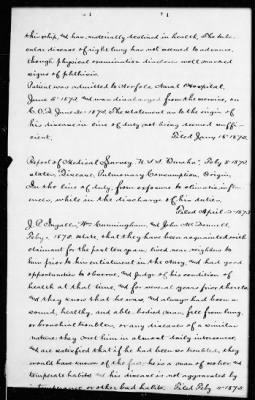 this ship, & has materially declined in health. The tuber-
cular disease of right lung has not seemed to advance,
though physical examination discloses well marked
signs of phthisis.
Patient was admitted to Norfolk Naval Hospital,
June 5" 1872, and was discharged from the service, on
The statement as to the origin
of his disease in line of duty not being deemed suffi-
cient. Filed Jany 15" 1873.
Report of Medical Survey, U.S.S. Feby 8" 1872
states, Disease, Pulmonary Consumption, Origin,
In the line of duty, from exposure to climatic influ-
ences, while in the discharge of his duties.
Filed April 1873
J. P. Ingalls, Wm Cunningham, & John McDonnell,
Feby 1873 state, that they have been acquainted with
claimant for the past ten years, lived near neighbors to
him prior to his enlistment in the Navy, and had good
opportunities to observe, and judge of his condition of
health at that time, and for several years prior thereto
and they know that he was and always had been a
sound, healthy, and able-bodied man, free from lung,
or bronchial troubles, or any diseases of a similar
nature; they met him in almost daily intercourse,
and are satisfied that if he had been so troubled, they
would have known of the fact; he is a man of sober, and
temperate habits and his disease is not aggravated by
intemperance or other bad habits. Filed Feby 1873